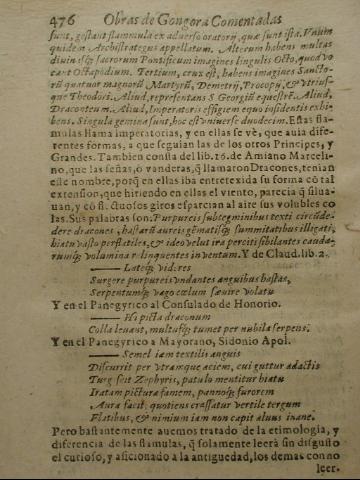 476 Obras de Gongora Comentadas
sunt, gostant flammula ex aduerso oratorij, quæ sunt ista. Vnum
quidem Archistrategus appellatum. Alterum habens multas
diuin esq; sacrorum Pontificum imagines singulis Octo, quod vo
cant Octapodium. Tertium, crux est, habens imagines Sancto-
rũ quatuor magnorũ Martyrũ, Demetrij, Procopij, & vtrius-
que Theodori. Aliud, repræsentans S. Georgiũ equestrẽ. Aliud,
Draconteum. Aliud, Imperatoris effigiem equo insidentis exhi
bens. Singula gemina sunt, hoc est vniuerse duodecim. Estas fla-
mulas llama Imperatorias, y en ellas se vè, que auia dife-
rentes formas, a que seguian las de los otros Principes, y
Grandes. Tambien consta del lib. 16. de Amiano Marceli-
no, que las señas, ò vanderas, q̃ llamaron Dracones, tenian
este nombre, porq̃ en ellas iba entretexida su forma cõ tal
extension, que hiriendo en ellas el viento, parecia q̃ silua-
uan, y cõ fluctuosos giros esparcian al aire sus volubles co
las. Sus palabras son. Purpureis subtegminibus texti circũde-
dere dracones, hastarũ aureis gẽmatisq; summitatibus illigati,
hiatu vasto perflatiles, & ideo velut ira perciti sibilantes cauda-
rumq; volumina relinquentes in ventum. Y de Claud. lib. 2.
Lateq; videres
Surgere purpureis vndantes anguibus hastas,
Serpentumq; vago cœlum sæuire volatu
Y en el Panegyrico al Consulado de Honorio.
Hi picta draconum
Colla leuant, multusq; tumet per nubila serpens.
Y en el Panegyrico a Mayorano, Sidonio Apol.
Semel iam textilis anguis
Discurrit per vtramque aciem, cui guttur adactis
Turgescit Zephyris, patulo mentitur hiatu
Iratam pictura famem, pannoq; furorem
Aura facit, quotiens crassatur vertile tergum
Flatibus, & nimium iam non capit aluus inane.
Pero bastantemente auemos tratado de la etimologia, y
diferencia de las flamulas, q̃ solamente leerà sin disgusto
el curioso, y aficionado a la antiguedad, los demas con no
leer.